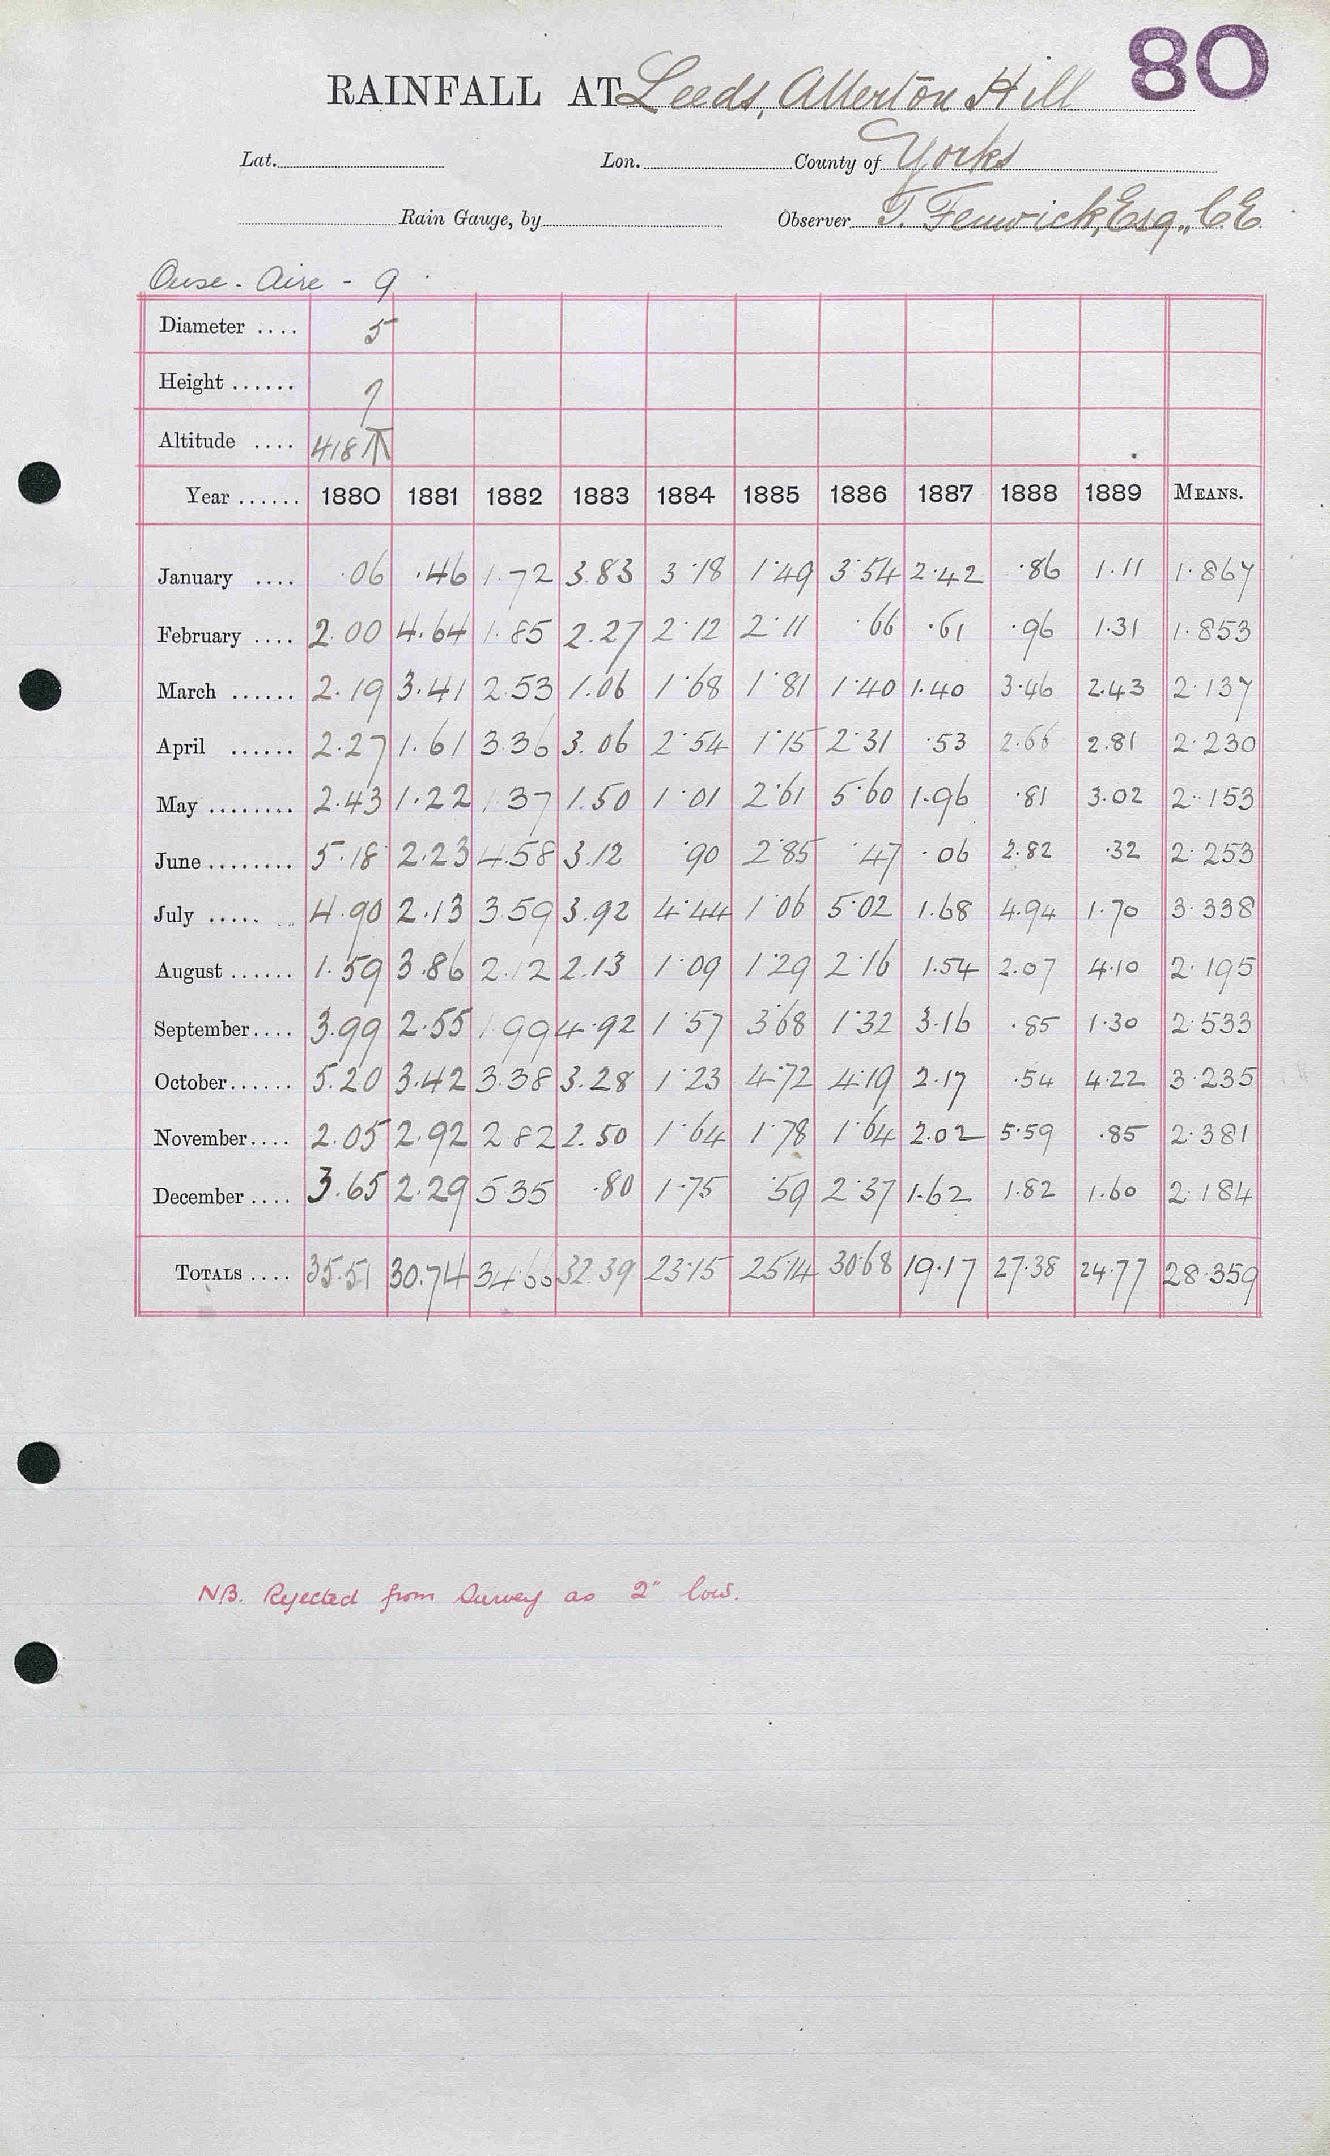 80
RAINFALL AT Leeds, Allerton Hill
Lat. Lon. County of Yorks
Rain Gauge, by Observer T. Fenwick, Esq., C.E.
Ouse - Aire - 9
Diameter .... 5
Height ......
Altitude .... 418
Year ...... 1880 1881 1882 1883 1884 1885 1886 1887 1888 1889 MEANS.
January .... .06 .46 1.72 3.83 3.18 1.49 3.54 2.42 .86 1.11 1.867
February .... 2.00 4.64 1.85 2.27 2.12 2.11 .66 .61 .96 1.31 1.853
March ...... 2.19 3.41 2.53 1.06 1.68 1.81 1.40 1.40 3.46 2.43 2.137
April ...... 2.27 1.61 3.36 3.06 2.54 1.15 2.31 .53 2.66 2.81 2.230
May ........ 2.43 1.22 1.37 1.50 1.01 2.61 5.60 1.96 .81 3.02 2.153
June ........ 5.18 2.23 4.58 3.12 .90 2.85 .47 .06 2.82 .32 2.253
July ..... 4.90 2.13 3.59 3.92 4.44 1.06 5.02 1.68 4.94 1.70 3.338
August ...... 1.59 3.86 2.12 2.13 1.09 1.29 2.16 1.54 2.07 4.10 2.195
September.... 3.99 2.55 1.99 4.92 1.57 3.68 1.32 3.16 .85 1.30 2.533
October...... 5.20 3.42 3.38 3.28 1.23 4.72 4.19 2.17 .54 4.22 3.235
November.... 2.05 2.92 2.82 2.50 1.64 1.78 1.64 2.02 5.59 .85 2.381
December .... 3.65 2.29 5.35 .80 1.75 .59 2.37 1.62 1.82 1.60 2.184
TOTALS .... 35.51 30.74 34.66 32.39 23.15 25.14 30.68 19.17 27.38 24.77 28.359
NB. Rejected from Survey as 2" low.